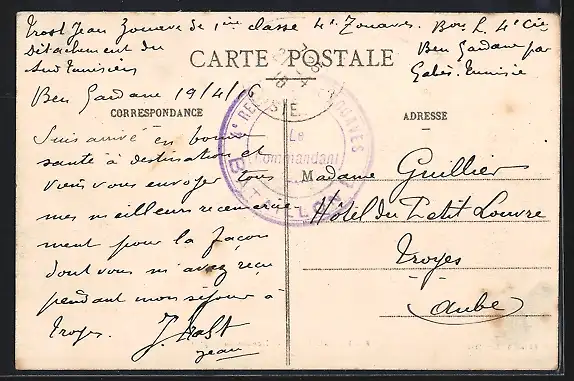 Trost Jean Zouave de 1ère classe 4e Zouaves. Bon L. 4e Cie
Détachement du
Sud Tunisien
Ben Gardane par
Gabès. Tunisie
CARTE POSTALE
Ben Gardane 19/4/16
CORRESPONDANCE
ADRESSE
4e REG ZOUAVES
Le
Commandant
BATAILLON
Suis arrivé en bonne
santé à destination et
viens vous envoyer tous
mes meilleurs remercie-
ment pour la façon
dont vous m'avez reçu
pendant mon séjour à
Troyes. J. Trost
Jean
Madame Guillier
Hôtel du Petit Louvre
Troyes
Aube